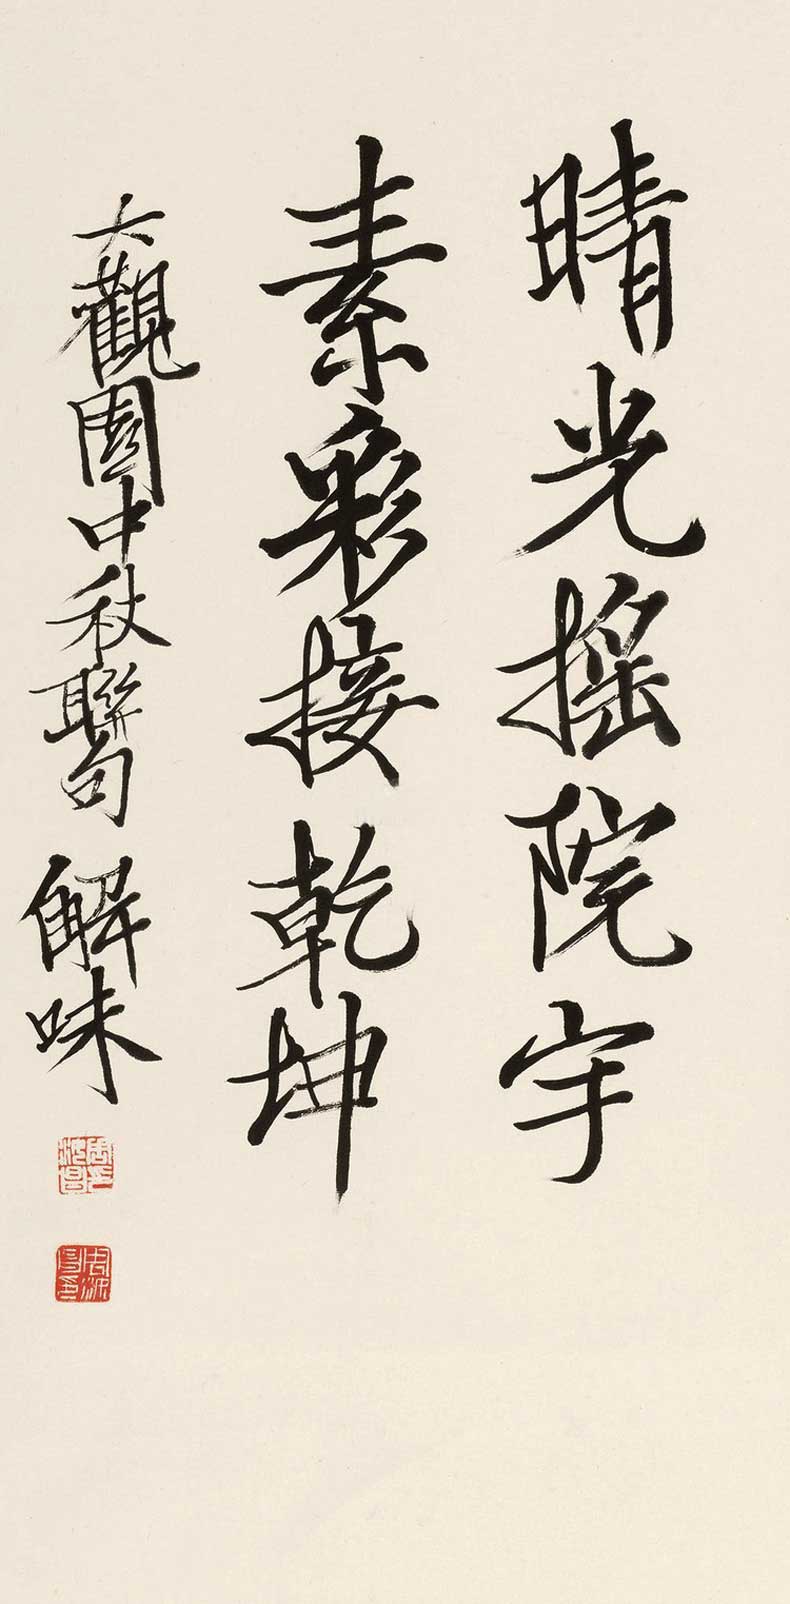 晴光搖院宇
素彩接乾坤
大觀園中秋聯句 解味